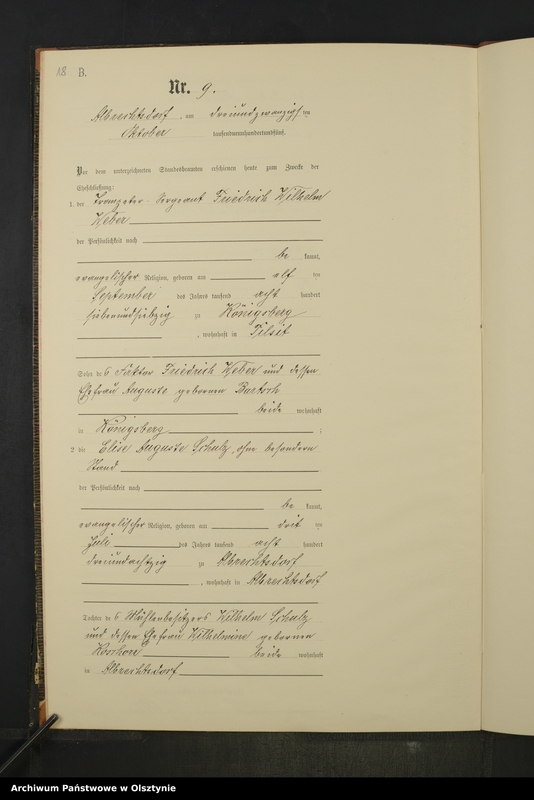 18 B.
Nr. 9.
Albrechtsdorf, am dreiundzwanzigsten
Oktober tausendneunhundertundfünf.
Vor dem unterzeichneten Standesbeamten erschienen heute zum Zwecke der
Eheschließung:
1. der Trompeter-Sergeant Friedrich Wilhelm
Weber
der Persönlichkeit nach
be kannt,
evangelischer Religion, geboren am elf ten
September des Jahres tausend acht hundert
siebenundsiebzig zu Königsberg
, wohnhaft in Tilsit
Sohn des Faktor Friedrich Weber und dessen
Ehefrau Auguste geborenen Bartsch
beide wohnhaft
in Königsberg ;
2. die Elise Auguste Schulz, ohne besondern
Stand
der Persönlichkeit nach
be kannt,
evangelischer Religion, geboren am drit ten
Juli des Jahres tausend acht hundert
dreiundachtzig zu Albrechtsdorf
, wohnhaft in Albrechtsdorf
Tochter des Mühlenbesitzers Wilhelm Schulz
und dessen Ehefrau Wilhelmine geborenen
beide wohnhaft
in Albrechtsdorf
Archiwum Państwowe w Olsztynie